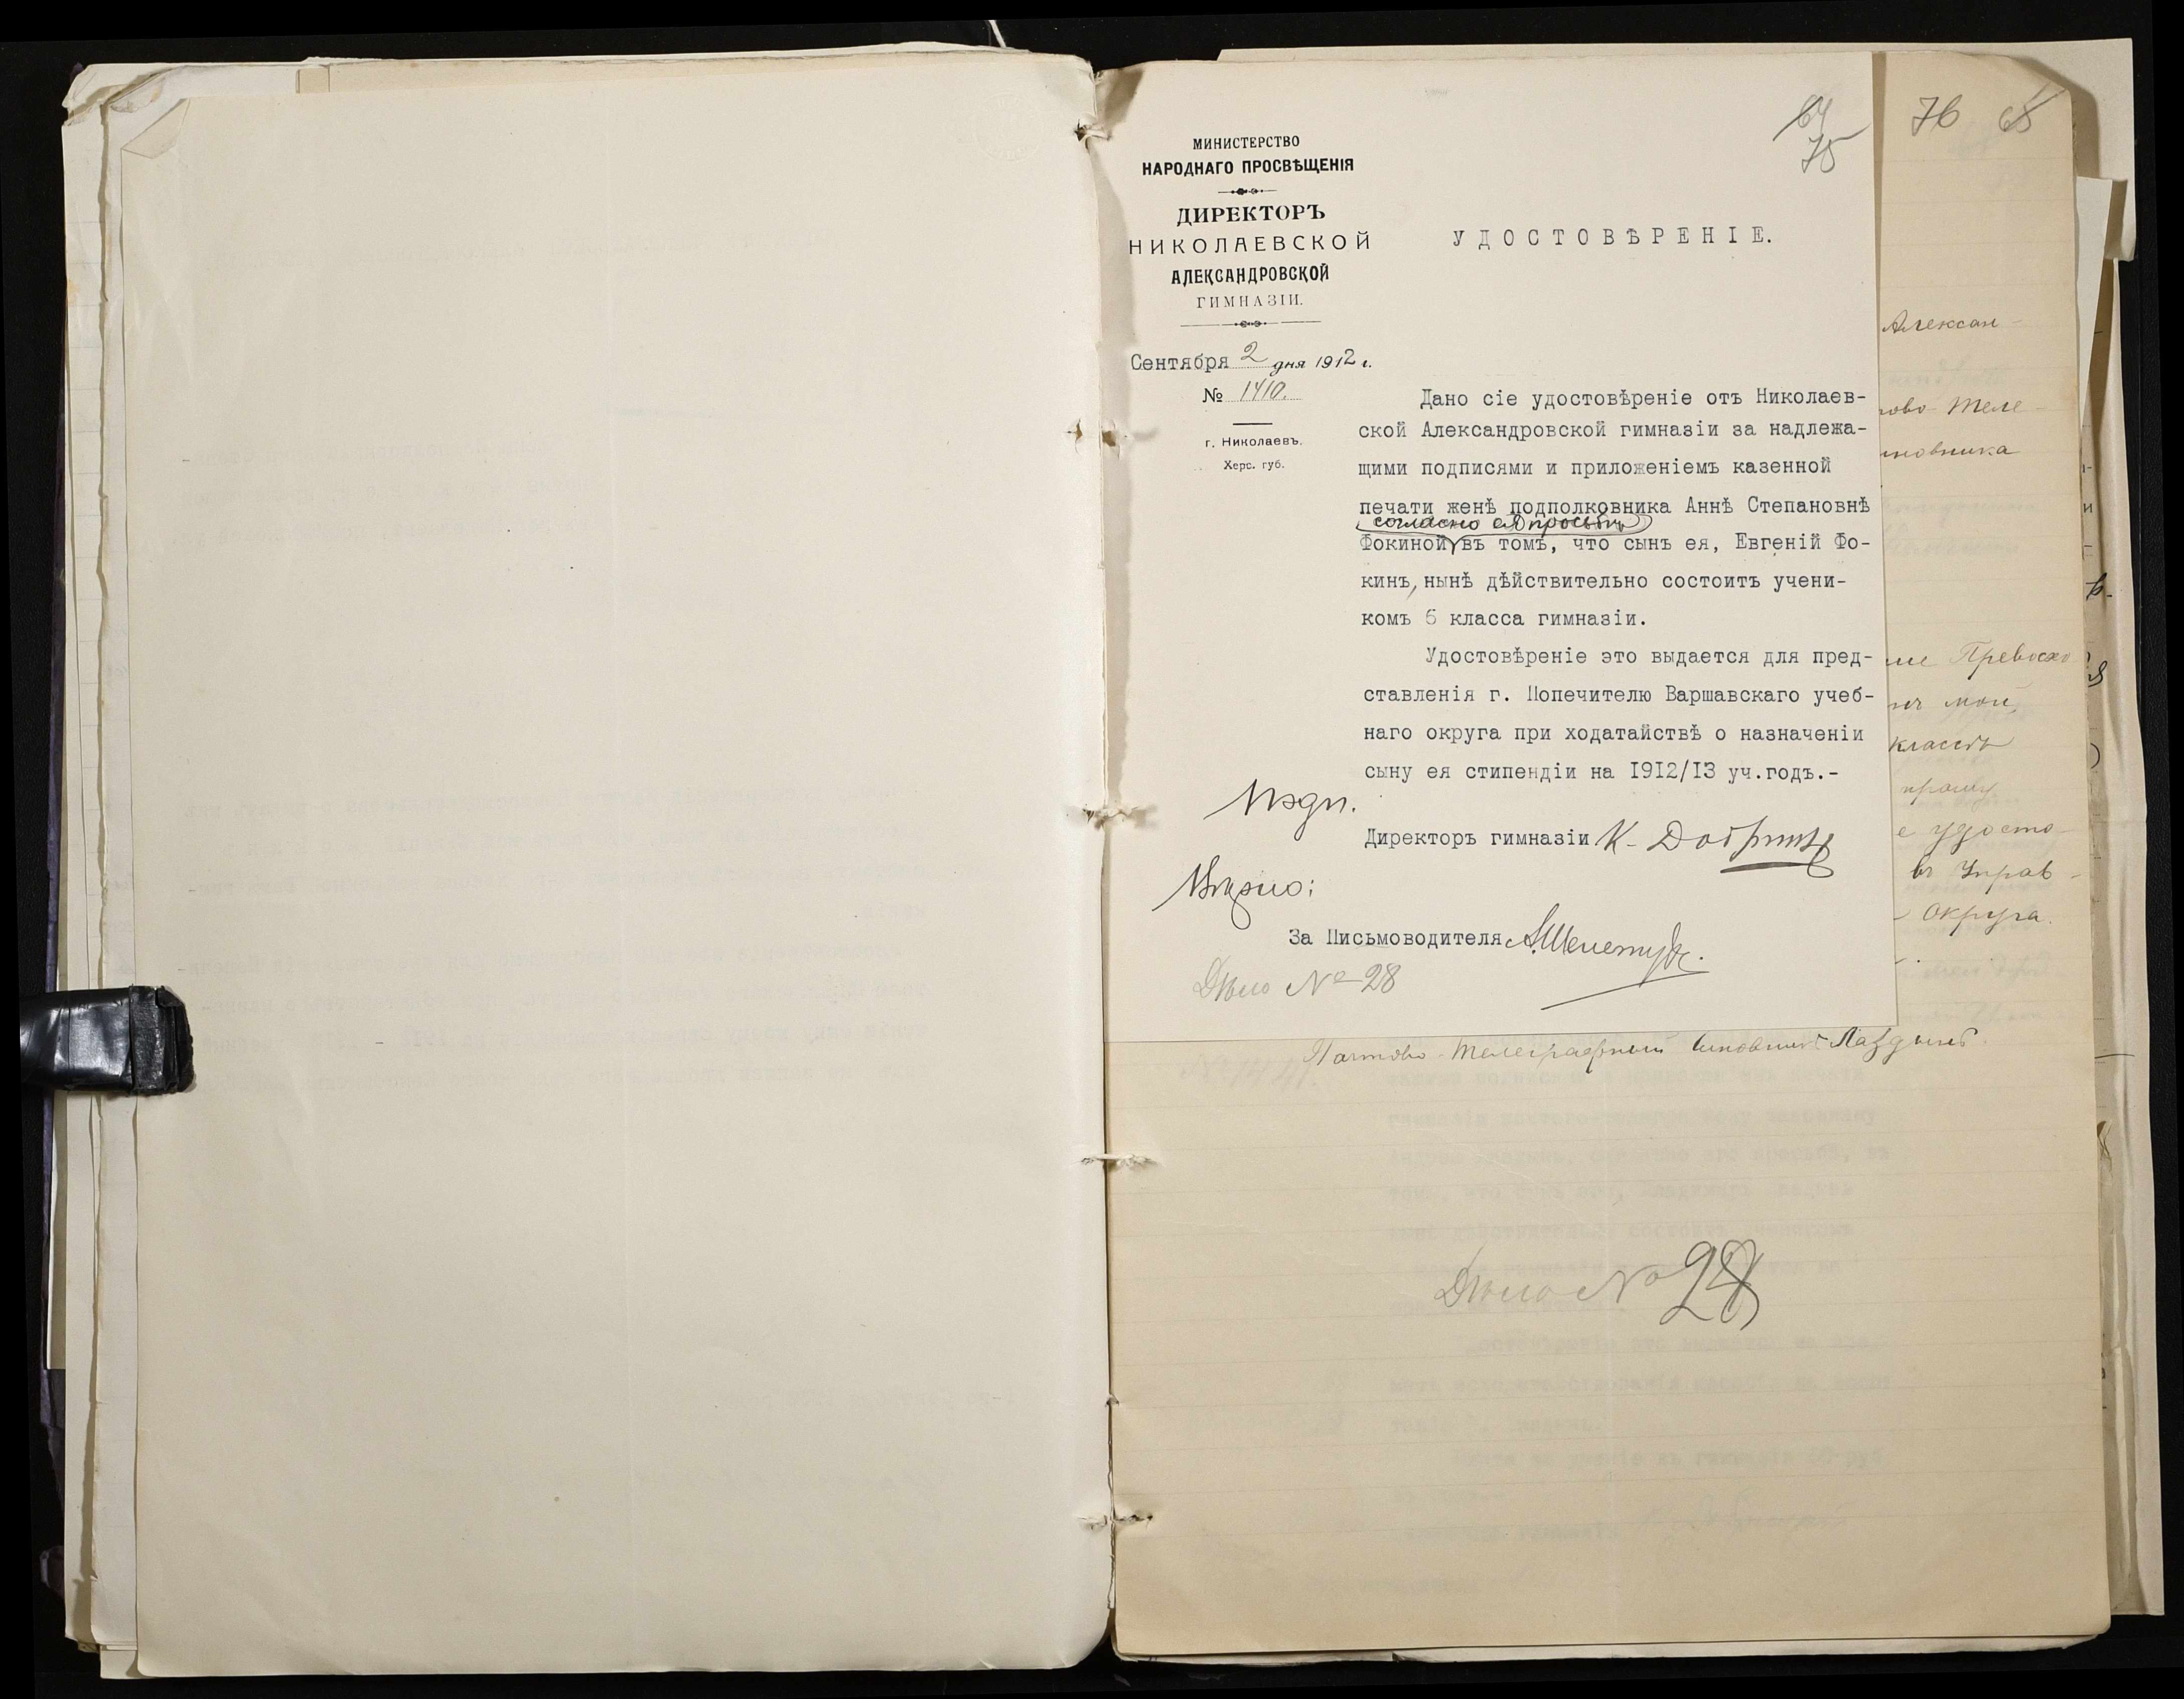 64
75
76 65
МИНИСТЕРСТВО
НАРОДНАГО ПРОСВѢЩЕНІЯ
ДИРЕКТОРЪ
НИКОЛАЕВСКОЙ
АЛЕКСАНДРОВСКОЙ
ГИМНАЗІИ.
Сентября 2 дня 1912 г.
№ 1410.
г. Николаевъ.
Херс. губ.
УДОСТОВѢРЕНІЕ.
Дано сіе удостовѣреніе отъ Николаев-
ской Александровской гимназіи за надлежа-
щими подписями и приложеніемъ казенной
печати женѣ подполковника Аннѣ Степановнѣ
согласно ея просьбы
Фокиной въ томъ, что сынъ ея, Евгеній Фо-
кинъ, нынѣ дѣйствительно состоитъ учени-
комъ 6 класса гимназіи.
Удостовѣреніе это выдается для пред-
ставленія г. Попечителю Варшавскаго учеб-
наго округа при ходатайствѣ о назначеніи
сыну ея стипендіи на 1912/13 уч.годъ.-
Директоръ гимназіи К.
Вѣрно:
За Письмоводителя
Дѣло № 28
Алексан-
ово-Теле-
иновника
Превосхо
мой,
классъ
прошу
е удосто-
въ Управ-
Округа.
Почтово-Телеграфный чиновникъ Лаздынь.
Дѣло № 28